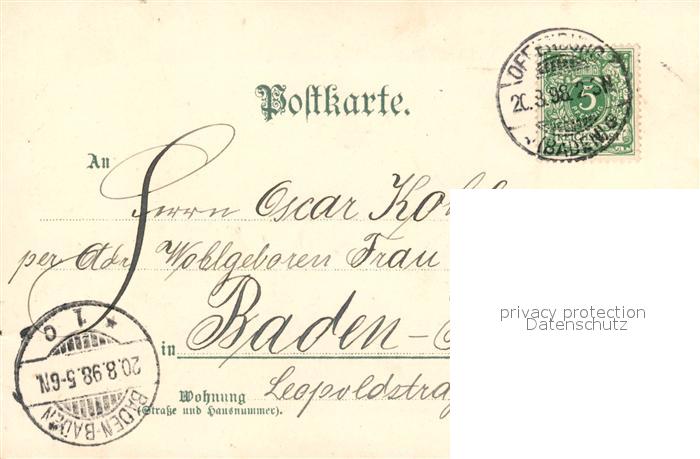 OFFENBURG
20.8.98.2-3N.
(BADEN)
5
Postkarte.
An
Herrn Oscar
per Adr. Wohlgeboren Frau
in Baden-
Wohnung Leopoldstra
(Straße und Hausnummer).
* 1 C
20.8.98.5-6N.
BADEN-BADEN
privacy protection
Datenschutz